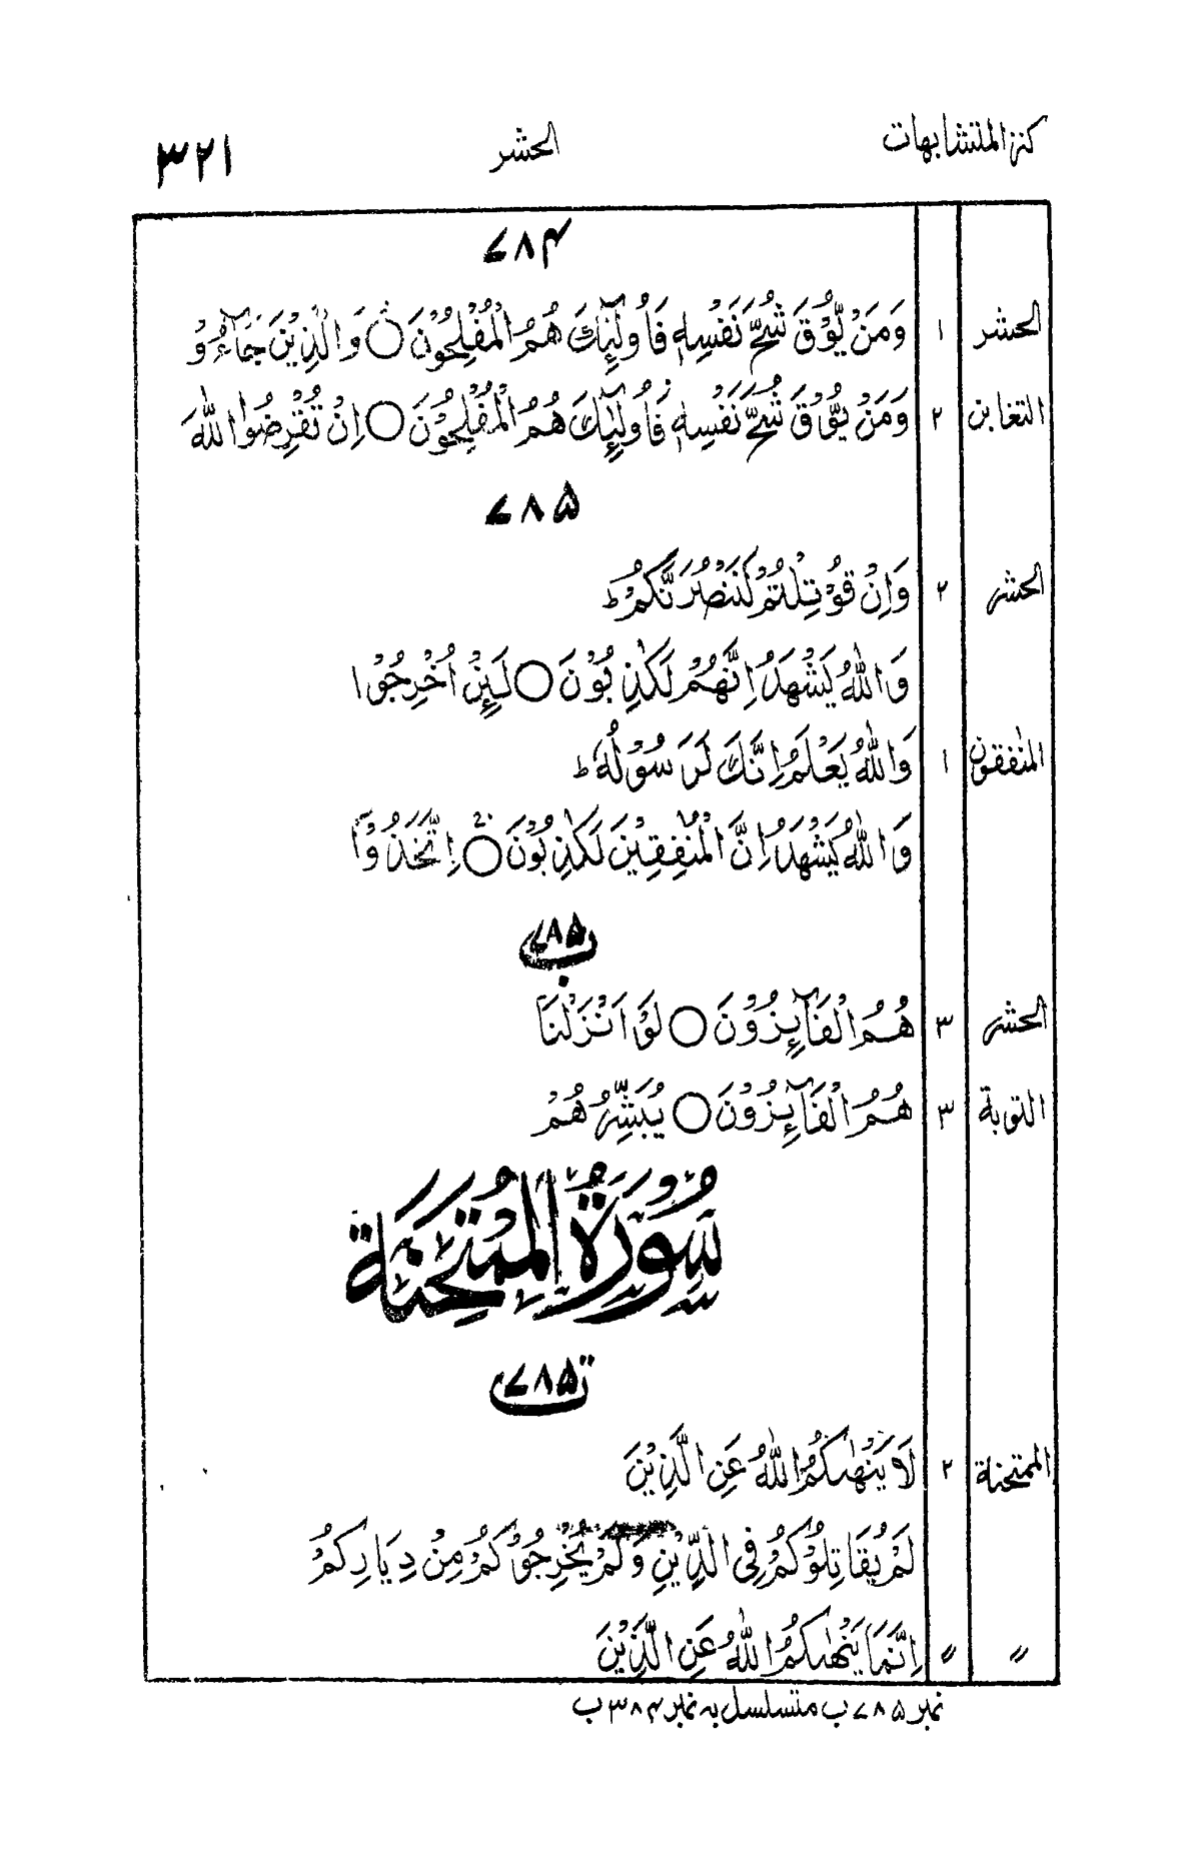 كنز المتشابهات الحشر ٣٢١
۷۸۴
الحشر ۱ وَمَنْ يُّوْقَ شُحَّ نَفْسِهٖ فَاُولٰٓئِكَ هُمُ الْمُفْلِحُوْنَ ○ وَالَّذِيْنَ جَآءُوْ
التغابن ۲ وَمَنْ يُّوْقَ شُحَّ نَفْسِهٖ فَاُولٰٓئِكَ هُمُ الْمُفْلِحُوْنَ ○ اِنْ تُقْرِضُوا اللّٰهَ
۷۸۵
الحشر ۲ وَاِنْ قُوْتِلْتُمْ لَنَنْصُرَنَّكُمْ ط
وَاللّٰهُ يَشْهَدُ اِنَّهُمْ لَكٰذِبُوْنَ ○ لَئِنْ اُخْرِجُوْا
المنٰفقون ۱ وَاللّٰهُ يَعْلَمُ اِنَّكَ لَرَسُوْلُهٗ ط
وَاللّٰهُ يَشْهَدُ اِنَّ الْمُنٰفِقِيْنَ لَكٰذِبُوْنَ ○ اِتَّخَذُوْٓا
۷۸۵ ب
الحشر ۳ هُمُ الْفَآئِزُوْنَ ○ لَوْ اَنْزَلْنَا
التوبة ۳ هُمُ الْفَآئِزُوْنَ ○ يُبَشِّرُهُمْ
سُوْرَةُ الْمُمْتَحِنَةِ
۷۸۵ ت
الممتحنة ۲ لَا يَنْهٰىكُمُ اللّٰهُ عَنِ الَّذِيْنَ
لَمْ يُقَاتِلُوْكُمْ فِى الدِّيْنِ وَلَمْ يُخْرِجُوْكُمْ مِنْ دِيَارِكُمْ
〃 〃 اِنَّمَا يَنْهٰىكُمُ اللّٰهُ عَنِ الَّذِيْنَ
نمبر ۷۸۵ ب متسلسل بہ نمبر ۳۸۴ ب